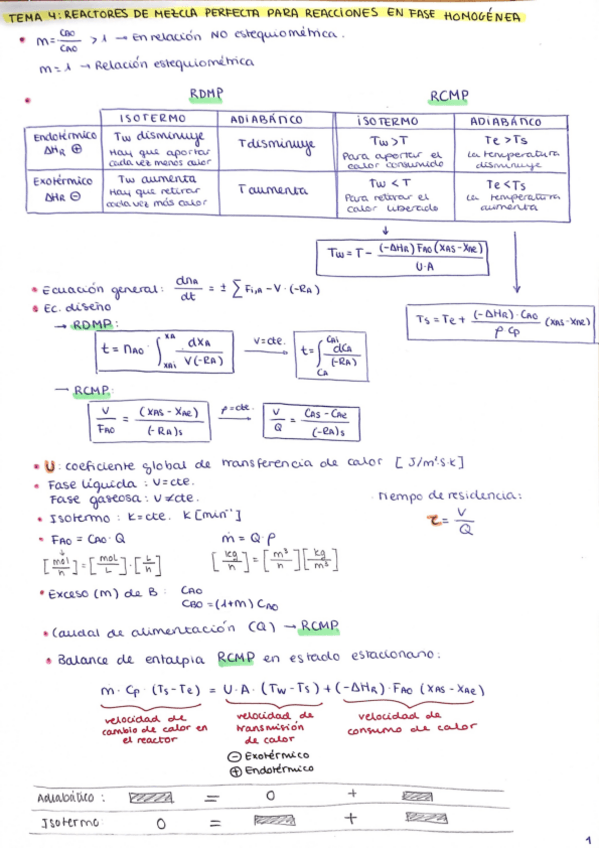 TEMA 4: REACTORES DE MEZCLA PERFECTA PARA REACCIONES EN FASE HOMOGÉNEA
• m = CBO/CAO > 1 → En relación NO estequiométrica.
m = 1 → Relación estequiométrica
RDMP RCMP
ISOTERMO ADIABÁTICO ISOTERMO ADIABÁTICO
Endotérmico ΔHR ⊕
Tw disminuye
Hay que aportar
cada vez menos calor
T disminuye
Tw > T
Para aportar el
calor consumido
Te > Ts
La temperatura
disminuye
Exotérmico ΔHR ⊖
Tw aumenta
Hay que retirar
cada vez más calor
T aumenta
Tw < T
Para retirar el
calor liberado
Te < Ts
La temperatura
aumenta
Tw = T - (-ΔHR) FAO (XAS - XAE) / U·A
• Ecuación general: dnA/dt = ± ∑ Fi,A - V·(-RA)
Ts = Te + (-ΔHR)·CAO / ρ Cp (XAS - XAE)
• Ec. diseño
→ RDMP:
t = nAO · ∫ XAi XA dXA / V(-RA) V=cte. → t = ∫ CA CAi dCA / (-RA)
→ RCMP:
V/FAO = (XAS - XAE) / (-RA)s ρ=cte. → V/Q = CAS - CAE / (-RA)s
• U: coeficiente global de transferencia de calor [J/m²·s·k]
• Fase líquida: V=cte.
Fase gaseosa: V≠cte.
• Isotermo: k=cte. k [min⁻¹]
Tiempo de residencia:
τ = V/Q
• FAO = CAO · Q ṁ = Q·ρ
[mol/h] = [mol/L] · [L/h] [kg/h] = [m³/h] [kg/m³]
• Exceso (m) de B: CAO
CBO = (1+m) CAO
• Caudal de alimentación (Q) → RCMP
• Balance de entalpia RCMP en estado estacionario:
ṁ · Cp · (Ts - Te) = U·A · (Tw - Ts) + (-ΔHR) · FAO (XAS - XAE)
velocidad de
cambio de calor en
el reactor
velocidad de
transmisión
de calor
velocidad de
consumo de calor
⊖ Exotérmico
⊕ Endotérmico
Adiabático: = 0 +
Isotermo: 0 = +
1